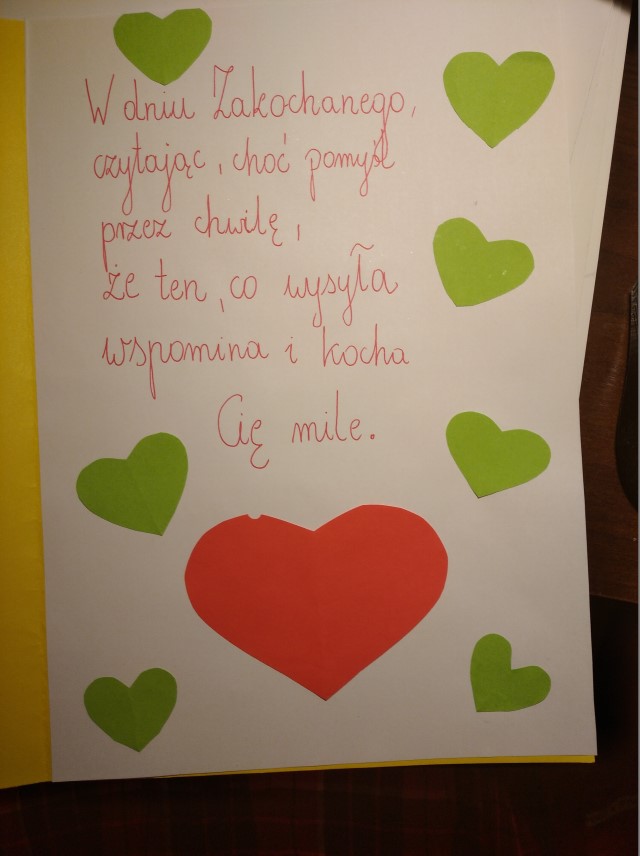 W dniu Zakochanego,
czytając, choć pomyśl
przez chwilę,
że ten, co wysyła
wspomina i kocha
Cię mile.